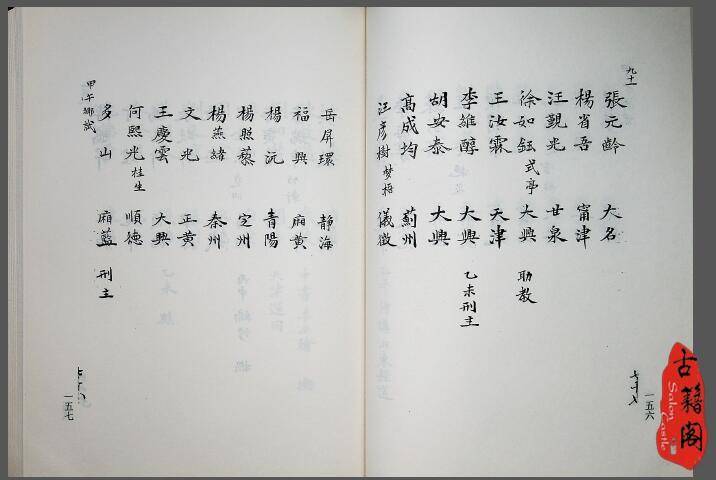 九十一
張元齡 大名
楊省吾 甯津
汪觀光 甘泉
徐如鈺 式亭 大興 助教
王汝霖 天津
李雄醇 大興 乙未刑主
胡安泰 大興
高成均 薊州
汪彥樹 梦梧 儀徵
一五六
岳屏環 静海
福興 廂黃
楊沅 青陽
楊照藜 定州
楊燕緒 秦州
文光 正黃
王慶雲 大興
何熙光 桂生 順德
多山 廂藍 刑主
甲午鄉試
一五七
古籍阁
Salon Castle